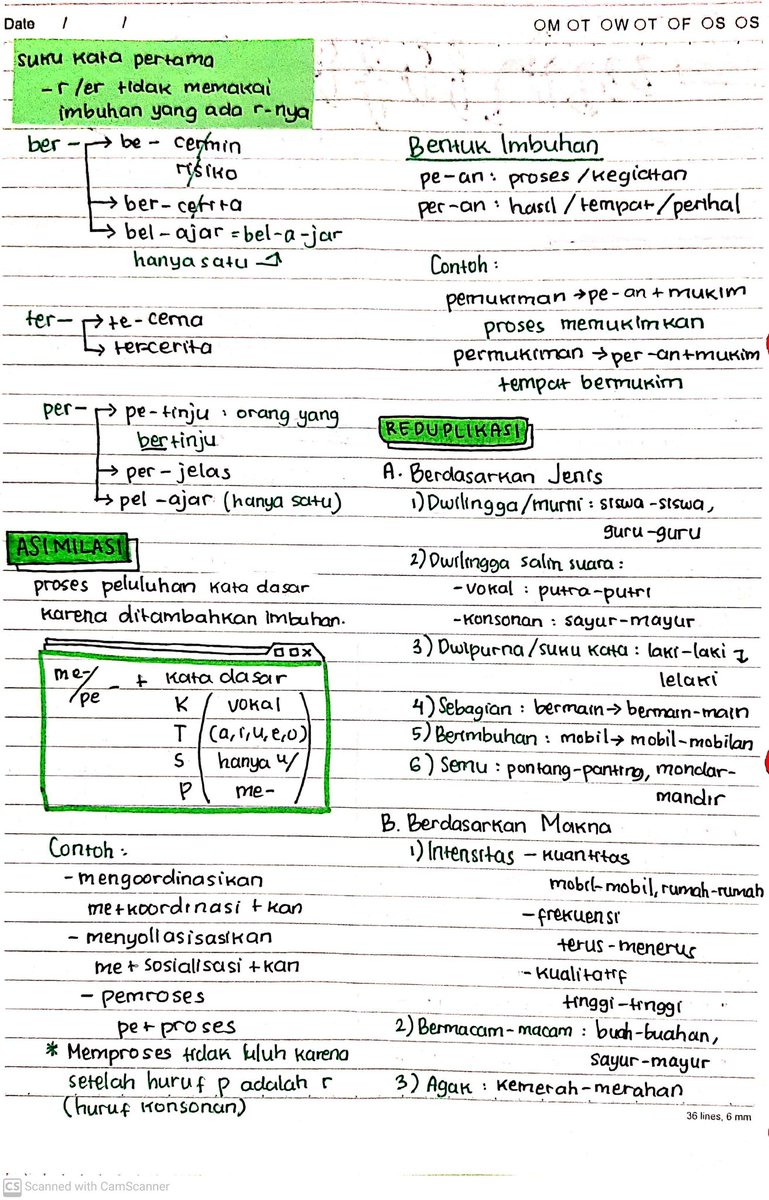 Date / /
OM OT OW OT OF OS OS
suku kata pertama
- r/er tidak memakai
imbuhan yang ada r-nya
ber- → be - cermin
risiko
→ ber-cerita
→ bel-ajar = bel-a-jar
hanya satu
ter- → te-cerna
→ ter-cerita
per- → pe-tinju : orang yang
bertinju
→ per-jelas
→ pel-ajar (hanya satu)
ASIMILASI
proses peluluhan kata dasar
karena ditambahkan imbuhan.
me-/pe- + kata dasar
K ( vokal
T (a, i, u, e, o)
S hanya u/
P me- )
Contoh :
- mengoordinasikan
me+koordinasi+kan
- menyoliasisasikan
me+sosialisasi+kan
- pemroses
pe+proses
* Memproses tidak luluh karena
setelah huruf p adalah r
(huruf konsonan)
Bentuk Imbuhan
pe-an : proses/kegiatan
per-an : hasil/tempat/perihal
Contoh :
pemukiman → pe-an+mukim
proses memukimkan
permukiman → per-an+mukim
tempat bermukim
REDUPLIKASI
A. Berdasarkan Jenis
1) Dwilingga/murni : siswa-siswa,
guru-guru
2) Dwilingga salin suara :
- vokal : putra-putri
- konsonan : sayur-mayur
3) Dwipurna/suku kata : laki-laki ↴
lelaki
4) Sebagian : bermain → bermain-main
5) Berimbuhan : mobil → mobil-mobilan
6) Semu : pontang-panting, mondar-
mandir
B. Berdasarkan Makna
1) Intensitas - kuantitas
mobil-mobil, rumah-rumah
- frekuensi
terus-menerus
- kualitatif
tinggi-tinggi
2) Bermacam-macam : buah-buahan,
sayur-mayur
3) Agak : kemerah-merahan
36 lines, 6 mm
CS Scanned with CamScanner